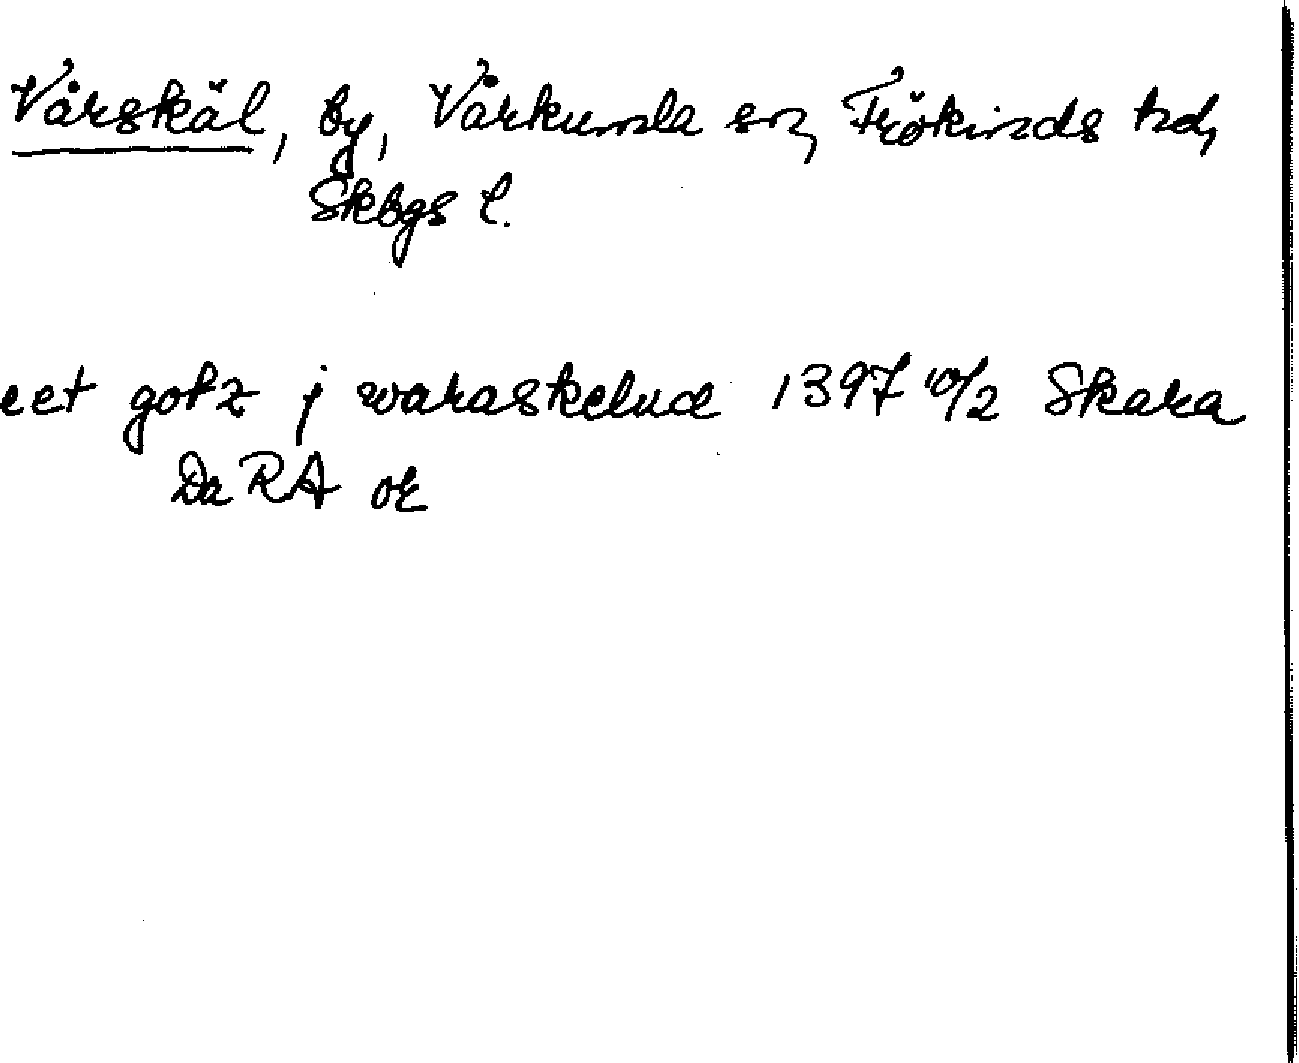 Vårskäl, by, Vårkumla sn, Frökinds hd,
Skbgs l.
eet gotz j waraskelum 1397 10/2 Skara
Da RA or